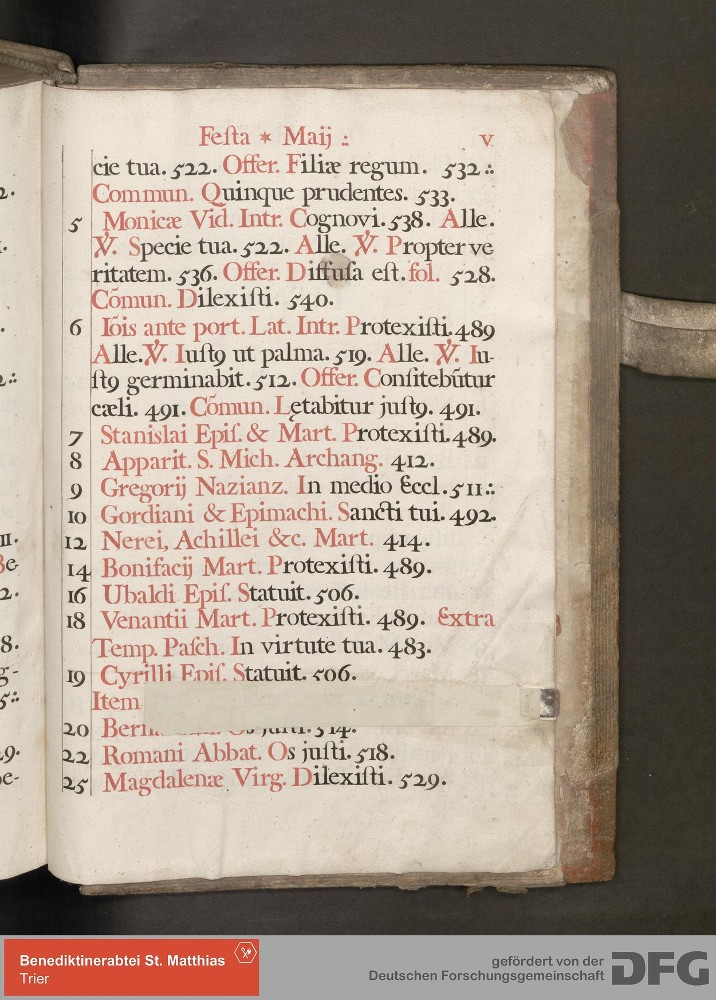 Feſta * Maij .: v
cie tua. 522. Offer. Filiæ regum. 532.:
Commun. Quinque prudentes. 533.
5 Monicæ Vid. Intr. Cognovi. 538. Alle.
℣. Specie tua. 522. Alle. ℣. Propter ve
ritatem. 536. Offer. Diffuſa eſt. fol. 528.
Cōmun. Dilexiſti. 540.
6 Iōis ante port. Lat. Intr. Protexiſti. 489
Alle. ℣. Iuſtꝰ ut palma. 519. Alle. ℣. Iu-
ſtꝰ germinabit. 512. Offer. Confitebūtur
cæli. 491. Cōmun. Lętabitur juſtꝰ. 491.
7 Stanislai Epiſ. & Mart. Protexiſti. 489.
8 Apparit. S. Mich. Archang. 412.
9 Gregorij Nazianz. In medio Eccl. 511.:
10 Gordiani & Epimachi. Sancti tui. 492.
12 Nerei, Achillei &c. Mart. 414.
14 Bonifacij Mart. Protexiſti. 489.
16 Ubaldi Epiſ. Statuit. 506.
18 Venantii Mart. Protexiſti. 489. Extra
Temp. Paſch. In virtute tua. 483.
19 Cyrilli Epiſ. Statuit. 506.
Item
20 Os juſti. 514.
22 Romani Abbat. Os juſti. 518.
25 Magdalenæ Virg. Dilexiſti. 529.
Benediktinerabtei St. Matthias
Trier
gefördert von der
Deutschen Forschungsgemeinschaft
DFG